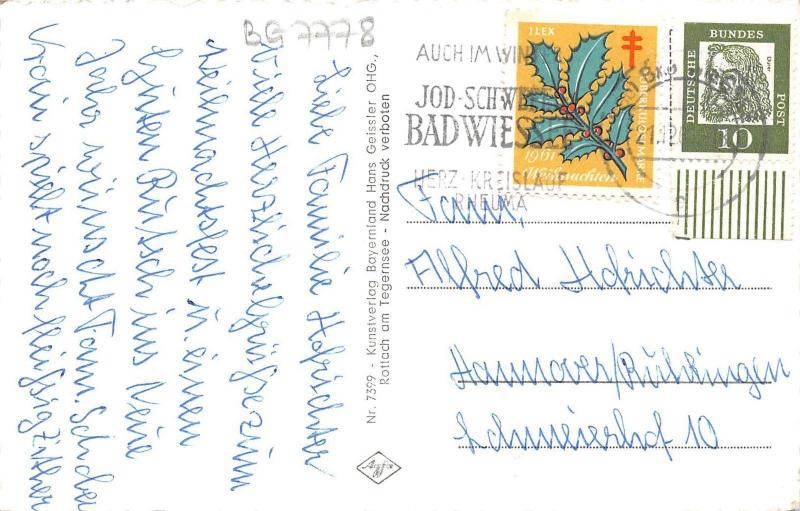 BG7778
Liebe Familie Hofrichter
Viele Herzliche Grüße zum
Weihnachtsfest u. einen
guten Rutsch ins Neue
Jahr wünscht Fam.
spielt noch fleißig Zither
Nr. 7399 - Kunstverlag Bayernland Hans Geissler OHG.,
Rottach am Tegernsee - Nachdruck verboten
Agfa
AUCH IM WIN
JOD-SCHWE
BAD WIES
HERZ-KREISLAUF
RHEUMA
ILEX
1961
Weihnachten
DEUTSCHE BUNDES POST
10
Fam,
Alfred Hofrichter
Hannover/
10